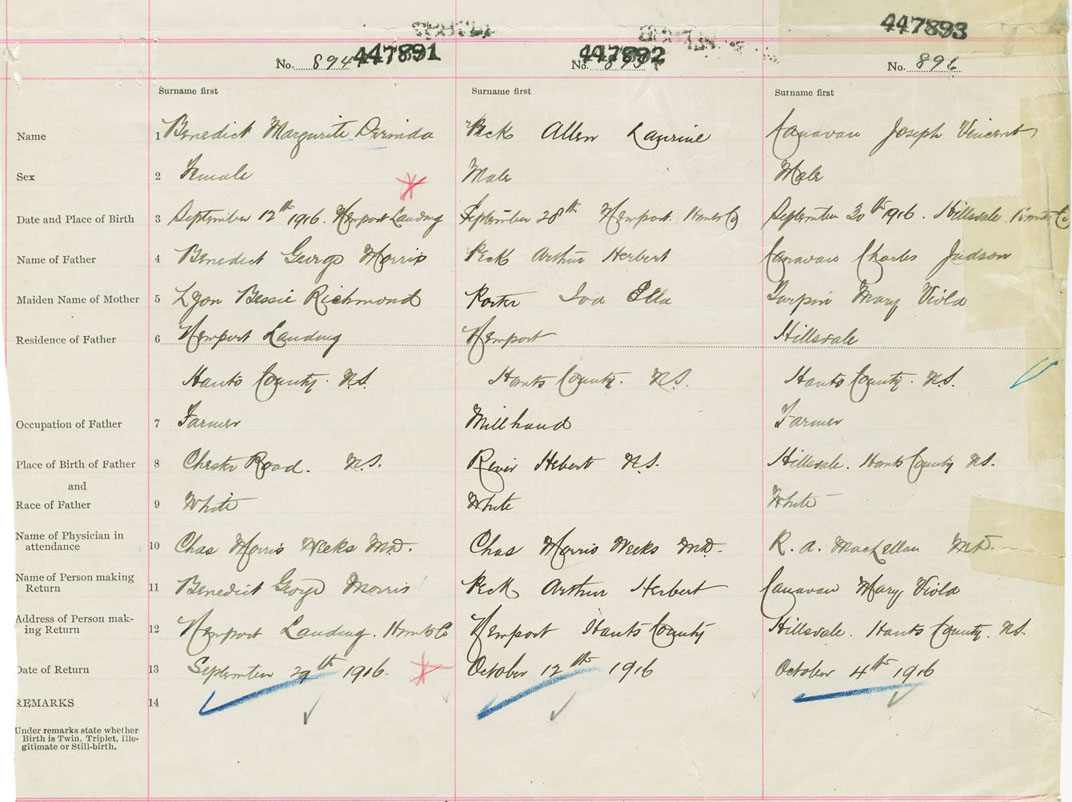 447891 447892 447893
No. 894 No. No. 896
Surname first Surname first Surname first
Name 1 Benedict Margurite Peck Allen Laurine Canavan Joseph Vincent
Sex 2 Female Male Male
Date and Place of Birth 3 September 12th 1916. Newport Landing September 28th Newport. September 30th 1916. Hillsvale
Name of Father 4 Benedict George Morris Peck Arthur Herbert Canavan Charles Judson
Maiden Name of Mother 5 Lyon Bessie Richmond Porter Ida Ella Turpin Mary Viola
Residence of Father 6 Newport Landing Newport Hillsvale
Hants County. N.S. Hants County. N.S. Hants County. N.S.
Occupation of Father 7 Farmer Millhand Farmer
Place of Birth of Father 8 Chester Road. N.S. River Hebert N.S. Hillsvale. Hants County N.S.
and
Race of Father 9 White White White
Name of Physician in
attendance 10 Chas Morris Weeks M.D. Chas Morris Weeks M.D. R. A. MacLellan M.D.
Name of Person making
Return 11 Benedict George Morris Peck Arthur Herbert Canavan Mary Viola
Address of Person mak-
ing Return 12 Newport Landing. Hants Co Newport Hants County Hillsvale. Hants County. N.S.
Date of Return 13 September 29th 1916. October 12th 1916 October 4th 1916
REMARKS 14
Under remarks state whether
Birth is Twin, Triplet, Ille-
gitimate or Still-birth.